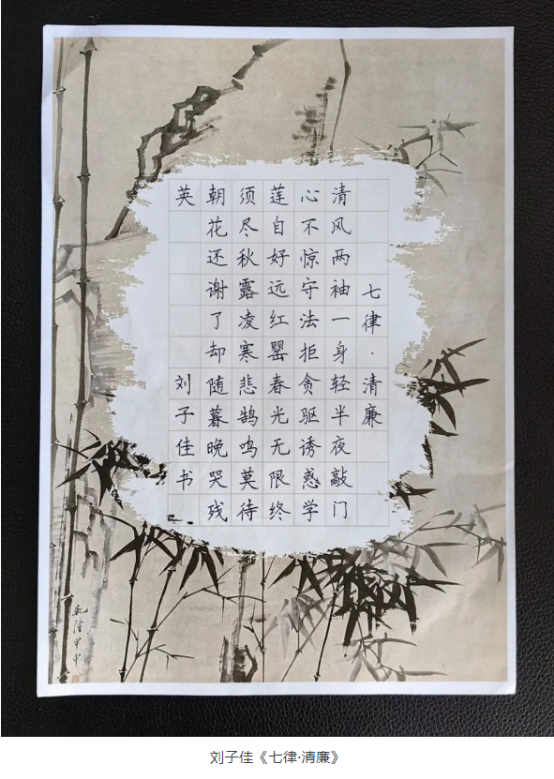 七律·清廉
清风两袖一身轻半夜敲门
心不惊守法拒贪驱诱惑学
莲自好远红罂春光无限终
须尽秋露凌寒悲鹄鸣莫待
朝花还谢了却随暮晚哭残
英
刘子佳书
刘子佳《七律·清廉》